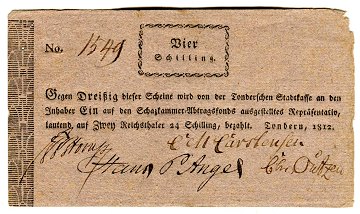 No. 1549
Vier
Schilling.
Gegen Dreißig dieser Scheine wird von der Tonderschen Stadtkasse an den
Inhaber Ein auf den Schazkammer-Abtragsfonds ausgestelltes Repräsentativ,
lautend, auf Zwey Reichsthaler 24 Schilling, bezahlt. Tondern, 1812.
Carstensen
Hans P. Angel